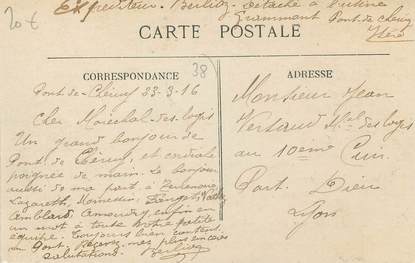 20€
Expéditeur. Berlioz. détaché à l'usine
Grammont Pont de Chéruy
Isère
CARTE POSTALE
CORRESPONDANCE
38
ADRESSE
Pont-de-Chéruy 23-3-16
Cher Maréchal-des-logis
Un grand bonjour de
Pont de Chéruy, et cordiale
poignée de main. Le bonjour
aussi de ma part à
Lazareth,
Amblard, Amoudry enfin en
un mot à toute notre petite
équipe. Toujours bien content
du Pont, Recevez mes plus sincères
salutations. Berlioz
Monsieur Jean
Versaud Mal des logis
au 10eme Cuir.
Part Dieu
Lyon